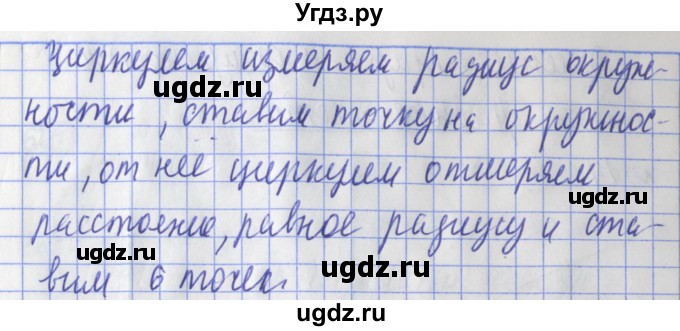 Угдз.ру
Циркулем измеряем радиус окруж-
ности, ставим точку на окружнос-
ти, от неё циркулем отмеряем
расстояние, равное радиусу и ста-
вим 6 точек.
ugdz.ru
ugdz.ru
ugdz.ru
ugdz.ru
ugdz.ru
ugdz.ru
ugdz.ru